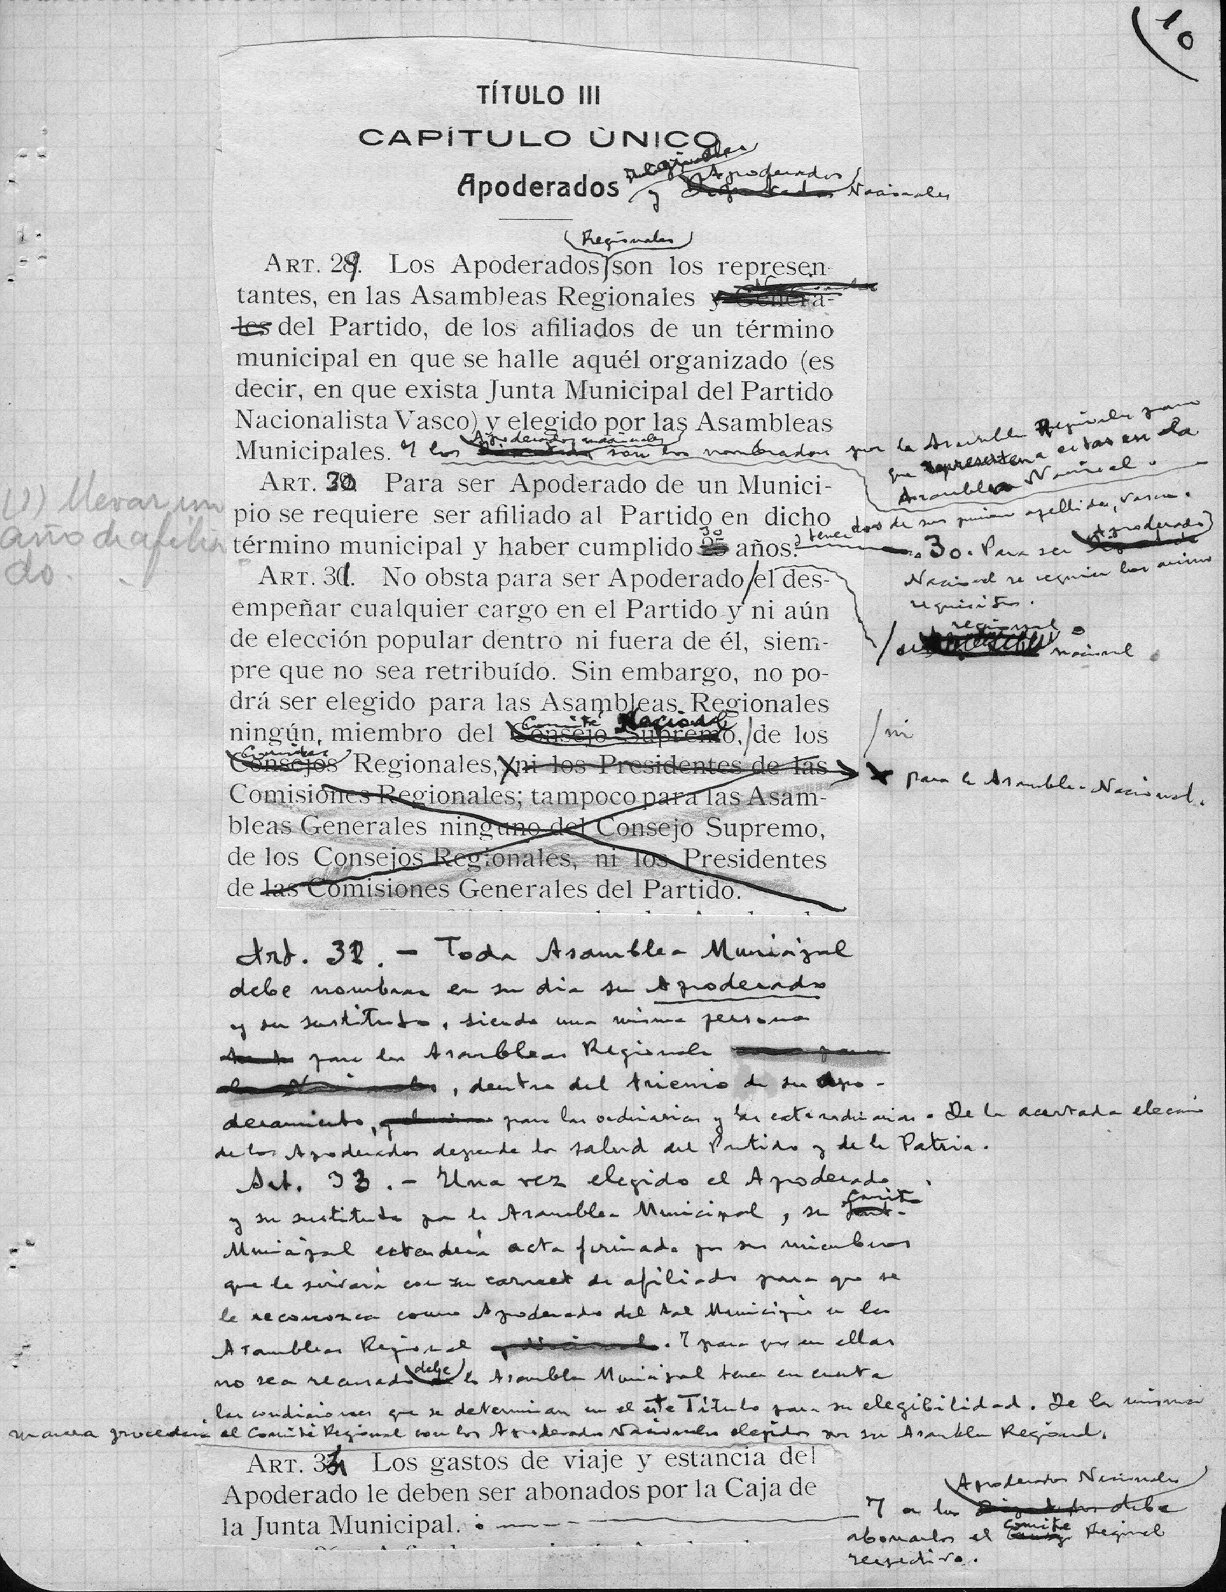 10
TÍTULO III
CAPÍTULO ÚNICO
Apoderados y Regionales Apoderados Diputados Nacionales
Regionales
ART. 29. Los Apoderados son los represen-
tantes, en las Asambleas Regionales y Genera-
les del Partido, de los afiliados de un término
municipal en que se halle aquél organizado (es
decir, en que exista Junta Municipal del Partido
Nacionalista Vasco) y elegido por las Asambleas
Apoderados nacionales
Municipales. Y los son los nombrados por la Asamblea Regional para
que representen a estas en la
Asamblea Nacional.
(1) Llevar un
año de afilia
do
ART. 30. Para ser Apoderado de un Munici-
pio se requiere ser afiliado al Partido en dicho
término municipal y haber cumplido 30 25 años. y tener dos de sus primeros apellidos, vascos.
30. Para ser Apoderado
Nacional se requieren los mismos
requisitos.
ART. 31. No obsta para ser Apoderado el des-
empeñar cualquier cargo en el Partido y ni aún
de elección popular dentro ni fuera de él, siem-
/ regional o nacional
pre que no sea retribuído. Sin embargo, no po-
drá ser elegido para las Asambleas Regionales
Comité Nacional
ningún miembro del Consejo Supremo, de los
/ ni
Comités
Consejos Regionales, ni los Presidentes de las
x para la Asamblea Nacional.
Comisiones Regionales; tampoco para las Asam-
bleas Generales ninguno del Consejo Supremo,
de los Consejos Regionales, ni los Presidentes
de las Comisiones Generales del Partido.
Art. 32. - Toda Asamblea Municipal
debe nombrar en su dia su Apoderado
y su sustituto, siendo una misma persona
para las Asambleas Regionales
, dentro del trienio de su apo-
deramiento, para las ordinarias y las extraordinarias. De la acertada elección
de los Apoderados depende la salud del Partido y de la Patria.
Art. 33. - Una vez elegido el Apoderado
y su sustituto por la Asamblea Municipal, su Comité
Municipal extenderá acta firmada por sus miembros
que le servirá con su carnet de afiliado para que se
le reconozca como Apoderado del tal Municipio en las
Asambleas Regional y Nacional. Y para que en ellas
no sea recusado debe la Asamblea Municipal tener en cuenta
las condiciones que se determinan en el este Título para su elegibilidad. De la misma
manera procederá el Comité Regional con los Apoderados Nacionales elegidos por su Asamblea Regional.
ART. 34. Los gastos de viaje y estancia del
Apoderado le deben ser abonados por la Caja de
la Junta Municipal.
Apoderados Nacionales
Y a los Diputados debe
abonarlos el Comité Regional
respectivo.